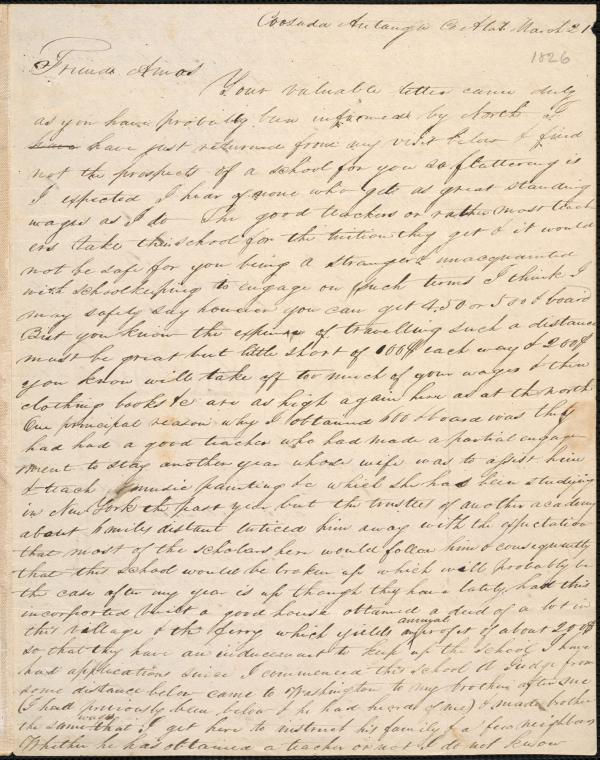 Coosada Autauga Co Ala March 21
1826
Friend Amos
Your valuable letter came duly
as you have probably been informed by North I
have just returned from my visit below & find
not the prospects of a school for you so flattering as
I expected I hear of none who gets as great standing
wages as I do The good teachers or rather most teach
ers take their school for the tuition they get & it would
not be safe for you being a stranger & unacquainted
with schoolkeeping to engage on such terms I think I
may safely say however you can get 450 or 500 & board
But you know the expense of travelling such a distance
must be great but little short of 100$ each way & 200$
you know will take off too much of your wages & then
clothing books &c are as high again here as at the north
One principal reason why I obtained 600 & board was they
had had a good teacher who had made a partial engage
ment to stay another year whose wife was to assist him
& teach music painting &c which she had been studying
in New York the past year but the trustees of another academy
about 6 miles distant enticed him away with the expectation
that most of the scholars here would follow him & consequently
that this school would be broken up which will probably be
the case after my year is up though they have lately had this
incorporated built a good house obtained a deed of a lot in
this village & the ferry which yields annual profit of about 200$
so that they have an inducement to keep up the school I have
had applications since I commenced this school A Judge from
some distance below came to Washington to my brother after me
(I had previously been below & he had heard of me) & made brother
the same wages that I get here to instruct his family & a few neighbors
Whether he has obtained a teacher or not I do not know